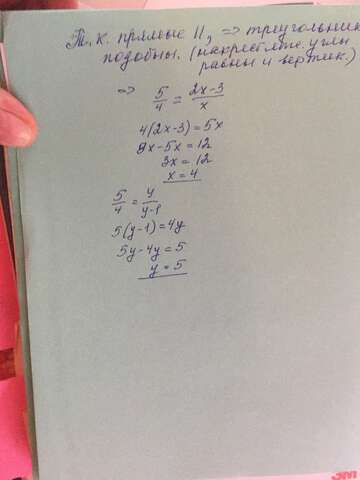 Т.к. прямые ||, => треугольники
подобны. (накрест леж. углы
равны и вертик.)
=> 5/4 = 2x-3/x
4(2x-3)=5x
8x-5x=12
3x=12
x=4
5/4 = y/y-1
5(y-1)=4y
5y-4y=5
y=5
3M